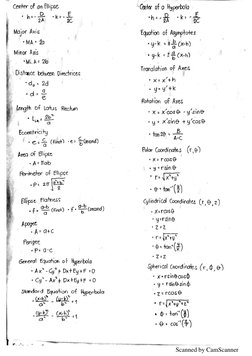 Center of an Ellipse
• h = - D/2A • k = - E/2C
Major Axis
• MA = 2a
Minor Axis
• MLA = 2b
Distance between Directrices
• d₂ = 2d
• d = a/e
Length of Latus Rectum
• L_LR = 2b²/a
Eccentricity
• e = c/a (first) • e = c/b (second)
Area of Ellipse
• A = πab
Perimeter of Ellipse
• P = 2π √(a²+b²/2)
Ellipse Flatness
• f = a-b/a (first) • f = a-b/b (second)
Apogee
• A = a+c
Perigee
• P = a-c
General Equation of Hyperbola
• Ax² - Cy² + Dx + Ey + F = 0
• Cy² - Ax² + Dx + Ey + F = 0
Standard Equation of Hyperbola
• (x-h)²/a² - (y-k)²/b² = 1
Center of a Hyperbola
• h = - D/2A • k = - E/2C
Equation of Asymptotes
• y-k = ± b/a (x-h)
• y-k = ± a/b (x-h)
Translation of Axes
• x = x' + h
• y = y' + k
Rotation of Axes
• x = x'cosθ - y'sinθ
• y = x'sinθ + y'cosθ
• tan 2θ = B/A-C
Polar Coordinates (r, θ)
• x = r cosθ
• y = r sinθ
• r = √x²+y²
• θ = tan⁻¹(y/x)
Cylindrical Coordinates (r, θ, z)
• x = r cosθ
• y = r sinθ
• z = z
• r = √x²+y²
• θ = tan⁻¹(y/x)
• z = z
Spherical Coordinates (r, θ, Φ)
Scanned by CamScanner